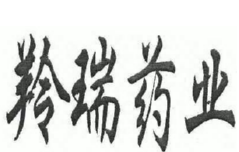 羚瑞药业